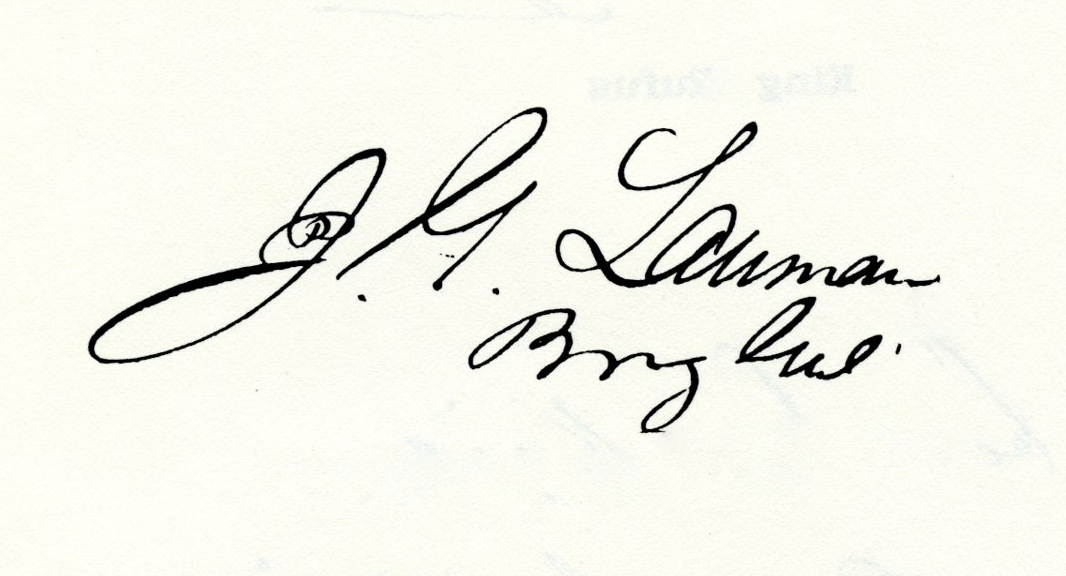 J. G. Lauman
Brig Genl